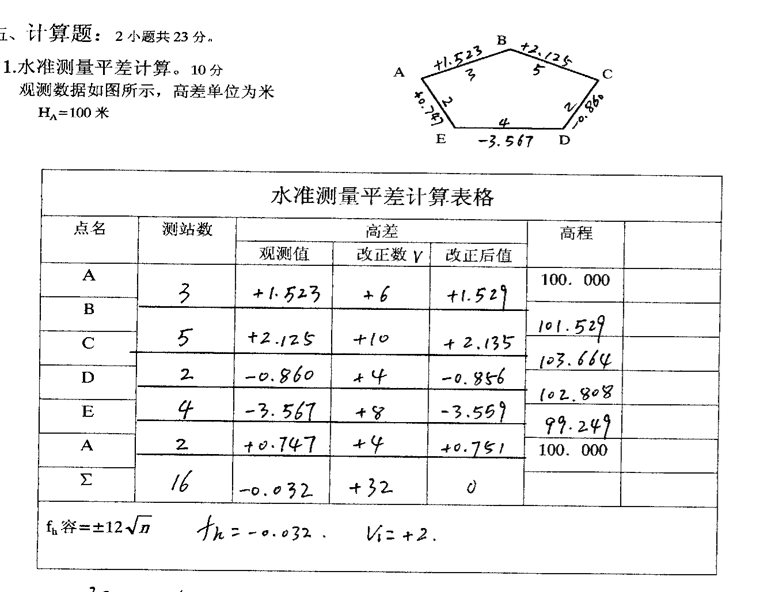 五、计算题：2小题共23分。
1.水准测量平差计算。10分
观测数据如图所示，高差单位为米
HA=100米
B
+1.523 +2.125
A 3 5 C
+0.747 2 2 -0.860
4
E -3.567 D
水准测量平差计算表格
点名 测站数 高差 高程
观测值 改正数 V 改正后值
A 100.000
3 +1.523 +6 +1.529
B 101.529
5 +2.125 +10 +2.135
C 103.664
2 -0.860 +4 -0.856
D 102.808
4 -3.567 +8 -3.559
E 99.249
2 +0.747 +4 +0.751
A 100.000
Σ 16 -0.032 +32 0
fh容=±12√n fh=-0.032. Vi=+2.